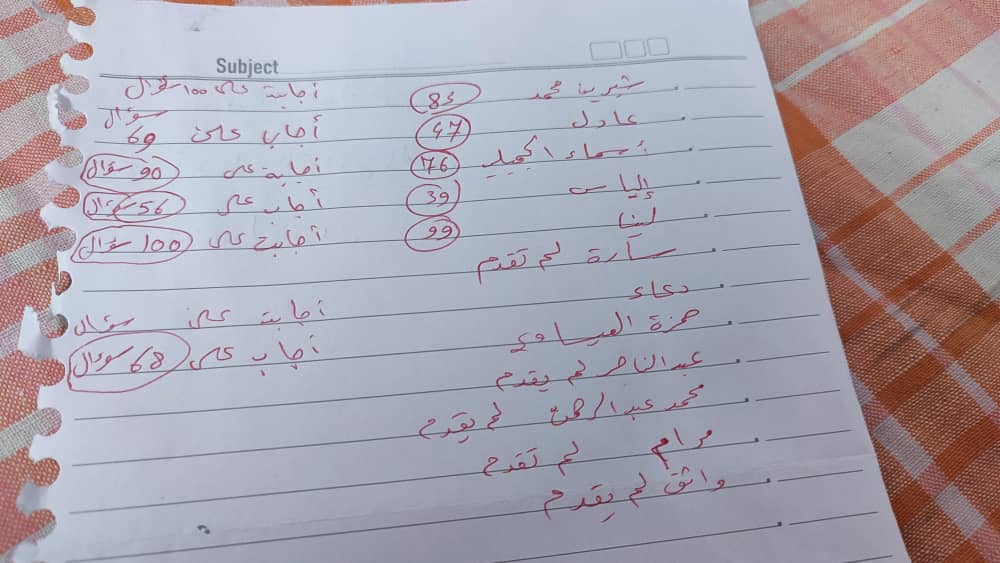 Subject
شيرين محمد 83 أجابة على 100 سؤال
عادل 47 أجاب على 69 سؤال
أسماء الجميلي 76 أجابة على 90 سؤال
إلياس 39 أجاب على 56 سؤال
لينا 99 أجابة على 100 سؤال
سارة لم تقدم
دعاء أجابة على سؤال
حمزة العيساوي أجاب على 68 سؤال
عبد الناصر لم يقدم
محمد عبد الرحمن لم يقدم
مرام لم تقدم
واثق لم يقدم